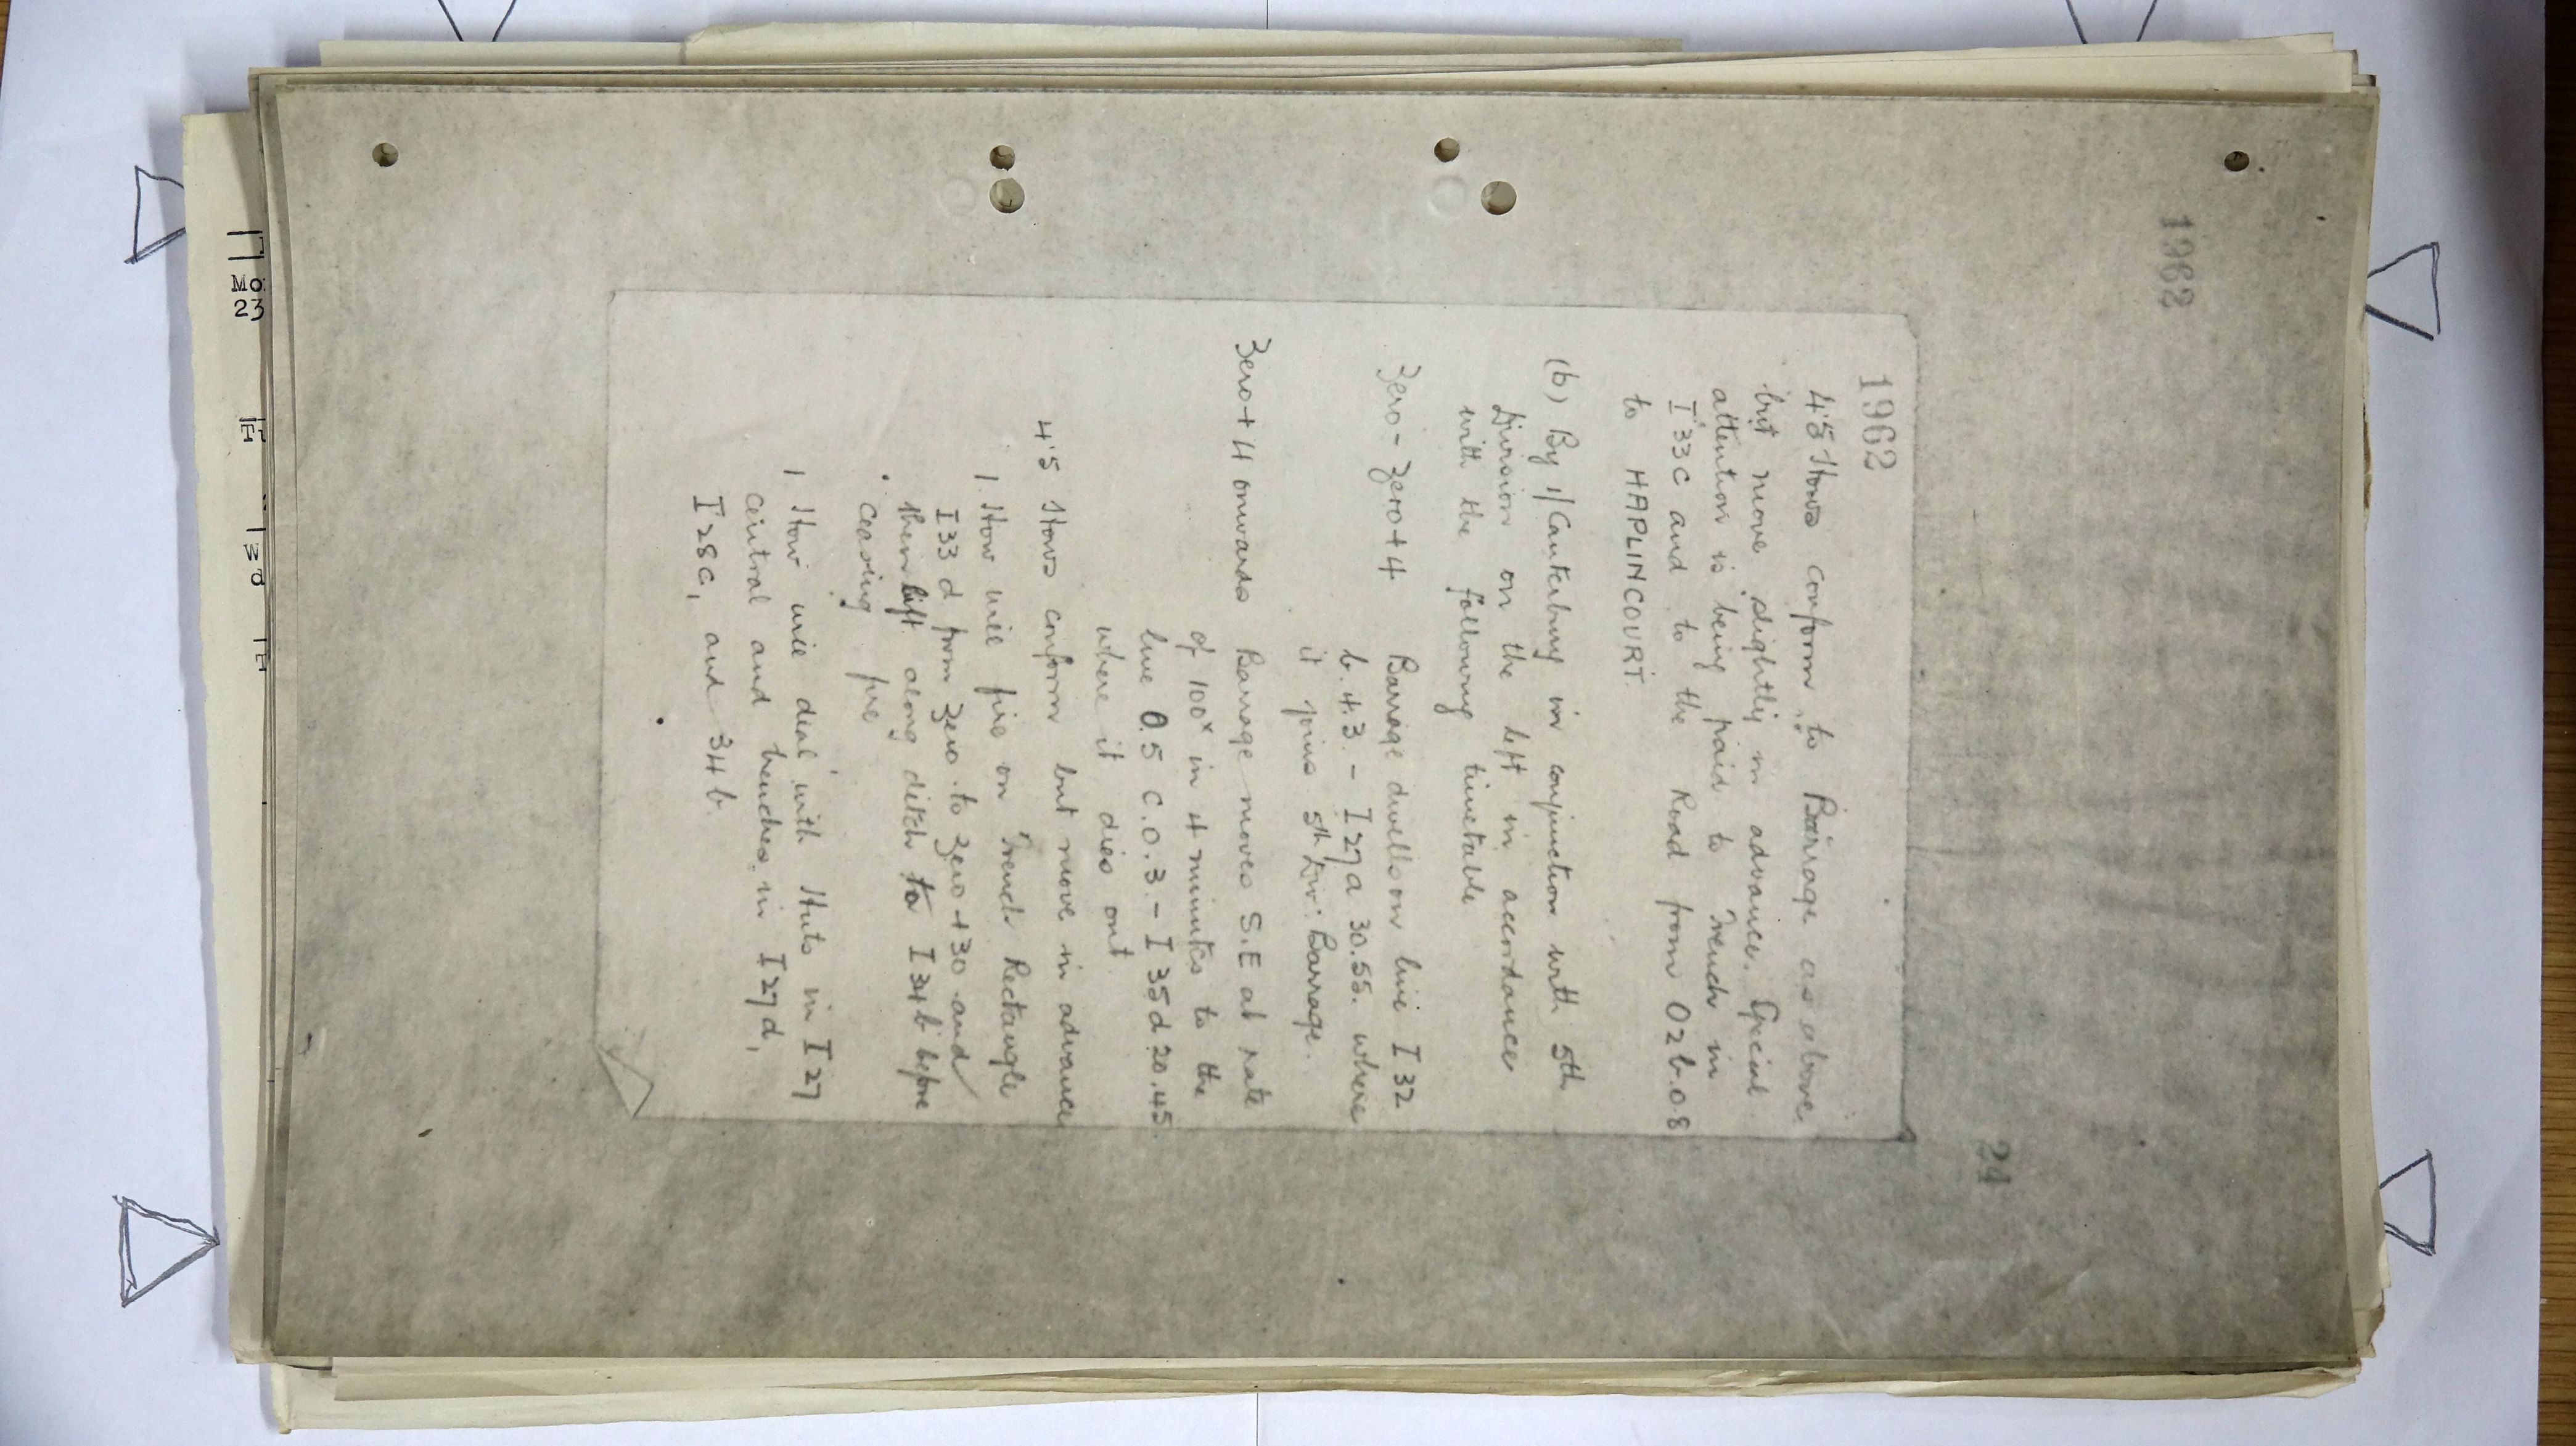 1962
24
1962
4.5 Hows conform to Barrage as above
but move slightly in advance. Special
attention is being paid to Trench in
I 33 C and to the Road from O2b.08
to HAPLINCOURT.
(b) By 1/Canterbury in conjunction with 5th
Division on the left in accordance
with the following timetable
Zero - Zero+4 Barrage dwells on line I 32
b.4.3 - I 27 a 30.55. where
it joins 5th Div: Barrage.
Zero+4 onwards Barrage moves S.E at rate
of 100x in 4 minutes to the
line O.5 C.O.3 - I 35 d 20.45.
where it dies out
4.5 Hows conform but move in advance
1 How will fire on Trench Rectangle
I 33 d from Zero to Zero +30 and
then lift along ditch to I 34 b before
ceasing fire
1 How will deal with Huts in I 27
central and trenches in I 27 d,
I 28 C, and 34 b.
Mo
23